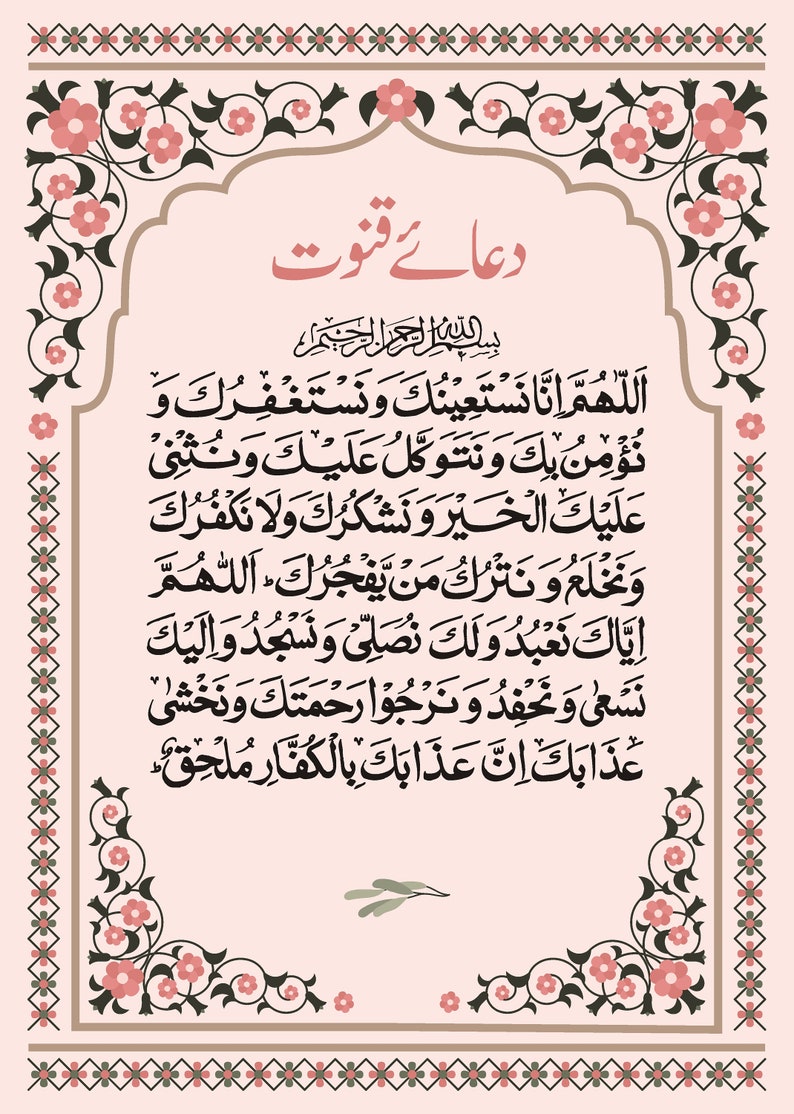 دعائے قنوت
بِسْمِ اللهِ الرَّحْمٰنِ الرَّحِيْمِ
اَللّٰهُمَّ اِنَّا نَسْتَعِيْنُكَ وَ نَسْتَغْفِرُكَ وَ
نُؤْمِنُ بِكَ وَ نَتَوَكَّلُ عَلَيْكَ وَ نُثْنِیْ
عَلَيْكَ الْخَيْرَ وَ نَشْكُرُكَ وَلَا نَكْفُرُكَ
وَ نَخْلَعُ وَ نَتْرُكُ مَنْ يَّفْجُرُكَ ؕ اَللّٰهُمَّ
اِيَّاكَ نَعْبُدُ وَلَكَ نُصَلِّیْ وَ نَسْجُدُ وَ اِلَيْكَ
نَسْعٰی وَ نَحْفِدُ وَ نَرْجُوْا رَحْمَتَكَ وَ نَخْشٰی
عَذَابَكَ اِنَّ عَذَابَكَ بِالْكُفَّارِ مُلْحِقٌ ؕ